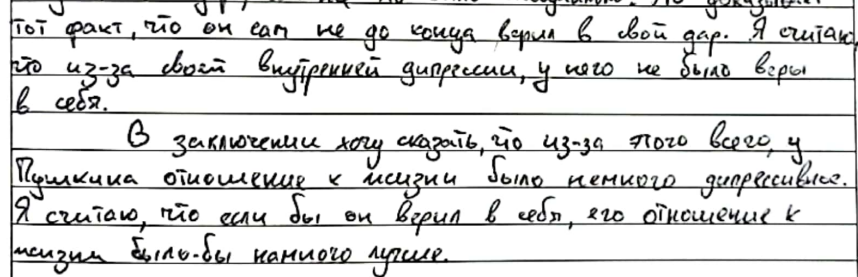 тот факт, что он сам не до конца верил в свой дар. Я считаю,
что из-за своей внутренней дипрессии, у него не было веры
в себя.
В заключении хочу сказать, что из-за этого всего, у
Пушкина отношение к жизни было немного дипрессивное.
Я считаю, что если бы он верил в себя, его отношение к
жизни было-бы намного лучше.